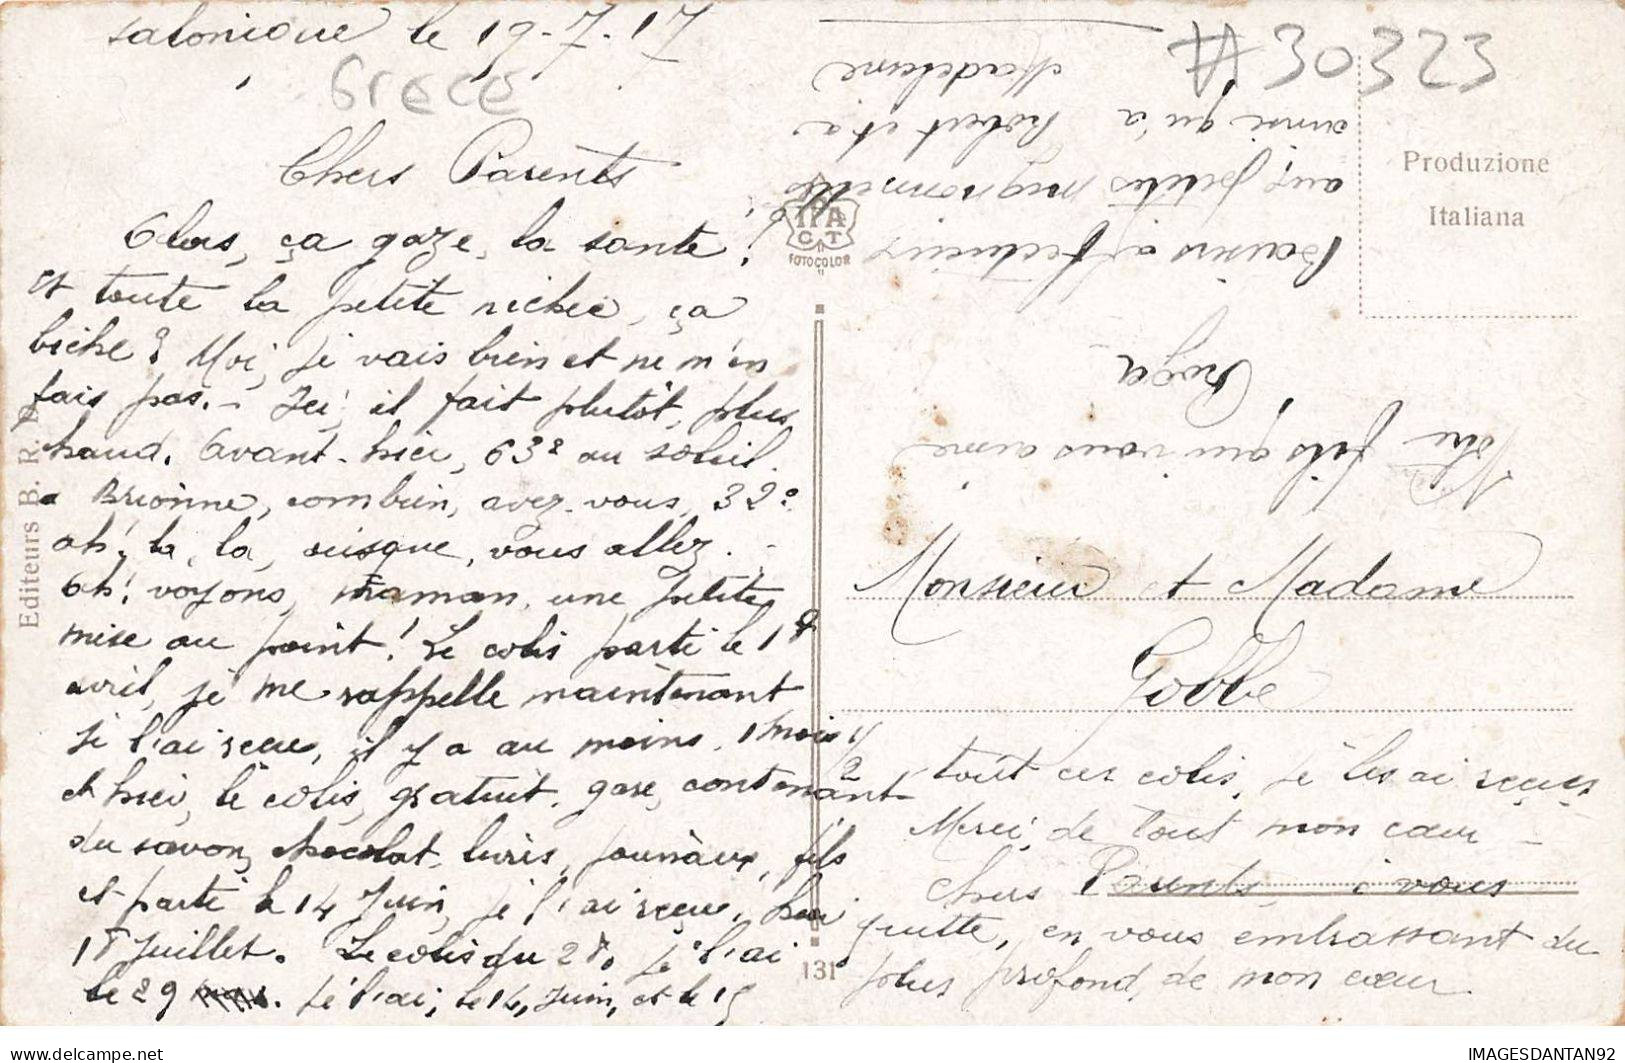 Salonique le 19-7-17
Grece
Chers Parents
Alors, ça gaze, la santé!
et toute la petite nichée, ça
biche? Moi, je vais bien et ne m'en
fais pas. - Ici, il fait plutôt, plus
chaud. Avant-hier, 63° au soleil.
a Brionne, combien, avez-vous, 32°
ah! la, la, ce que, vous allez. -
Ah! voyons, maman, une petite
mise au point! Le colis parti le 18
avril, je me rappelle maintenant
Je l'ai reçu, il y a au moins, 1 mois 1/2
et hier, le colis, gratuit, gare, contenant
du savon, chocolat, livres, journaux, fils
et parti le 14 Juin, je l'ai reçu, hier
18 Juillet. Le colis du 28, je l'ai
le 29. Je l'ai, le 14, Juin, et le 15
tout ces colis, je les ai reçus
Merci, de tout mon cœur -
chers Parents, je vous
quitte, en vous embrassant du
plus profond, de mon cœur.
Baisers affectueux
aux petites mignonnettes
ainsi qu'à Robert et à
Madeleine
Votre fils qui vous aime
Roger
Monsieur et Madame
Gobbe
#30323
Produzione
Italiana
IPA
CT
FOTOCOLOR
Editeurs B. R.
131
delcampe.net
IMAGESDANTAN92